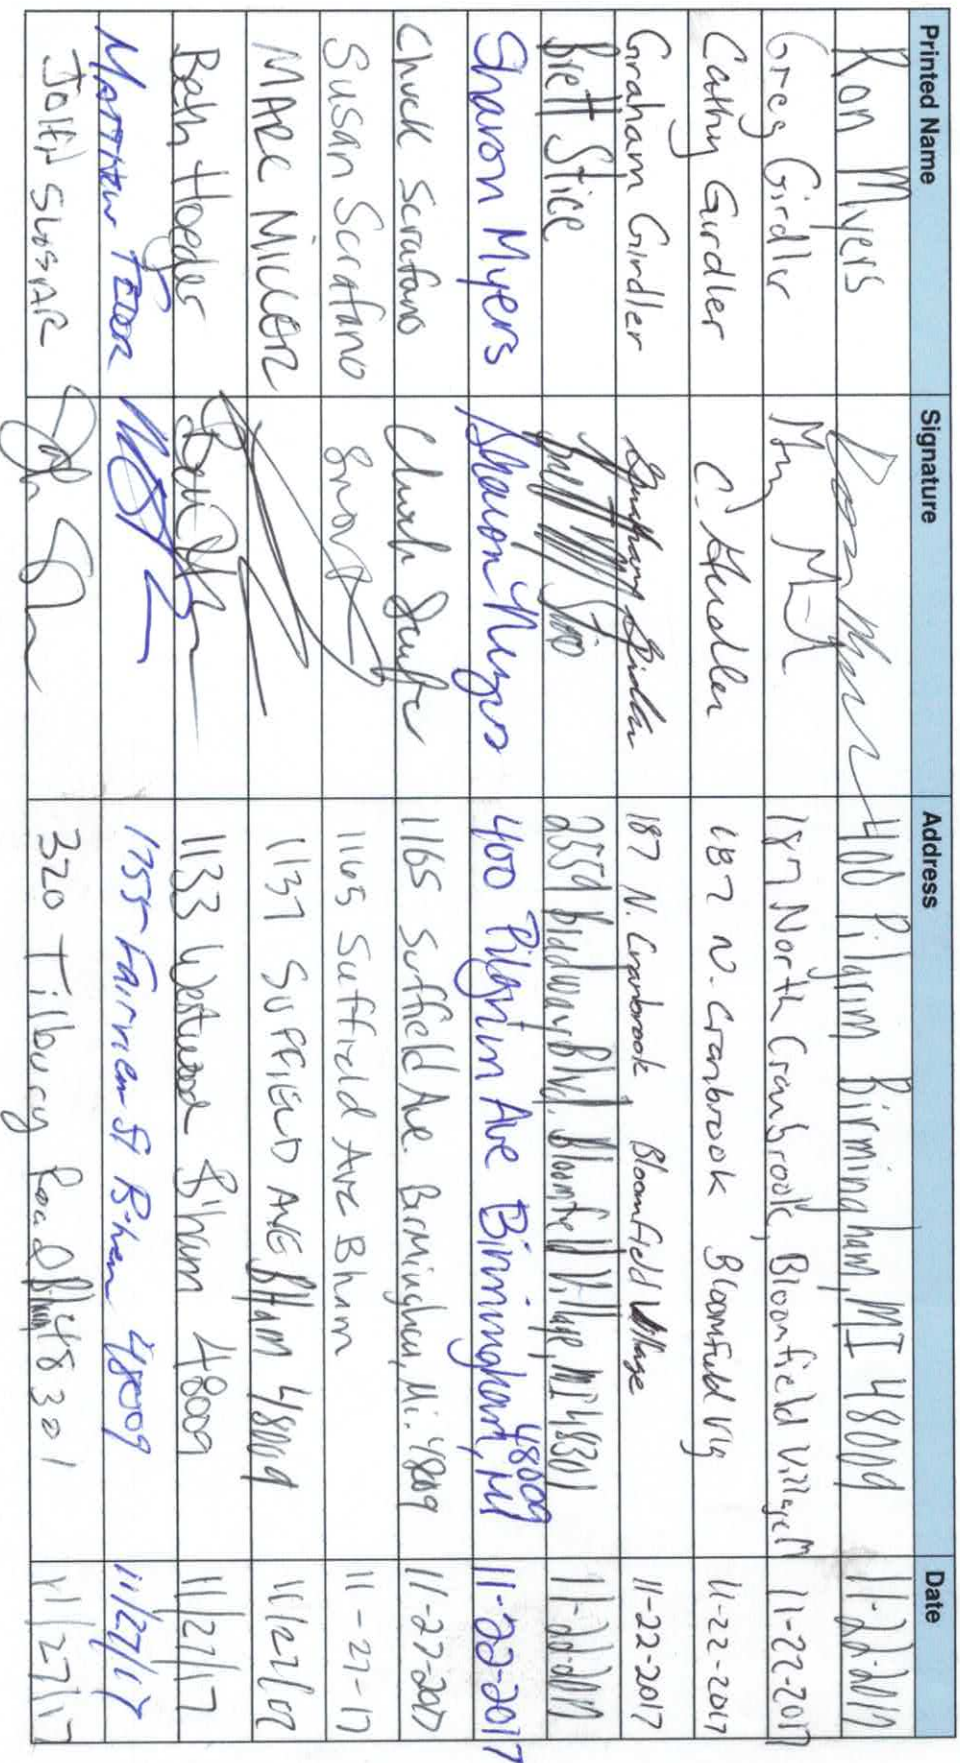 Printed Name Signature Address Date
Ron Myers 400 Pilgrim Birmingham, MI 48009 11-22-2017
Greg Girdler 187 North Cranbrook, Bloomfield Village M 11-22-2017
Cathy Girdler C. Girdler 187 N. Cranbrook Bloomfield Vlg 11-22-2017
Graham Girdler Graham Girdler 187 N. Cranbrook Bloomfield Village 11-22-2017
Brett Stice 2354 Bloomfield Village, MI 48301 11-22-2017
Sharon Myers Sharon Myers 400 Pilgrim Ave Birmingham, MI 48009 11-22-2017
Chuck Scrafano 1165 Suffield Ave. Birmingham, Mi. 48009 11-27-2017
Susan Scrafano 1165 Suffield Ave Bham 11-27-17
MARC MILLER 1137 SUFFIELD AVE BHAM 48009 11/27/17
Beth Hoeger 1133 Westwood B'ham 48009 11/27/17
Matthew 1755 Fairview St B-ham 48009 11/27/17
JOHN SLOSAR 320 Tilbury Road 48301 11/27/17